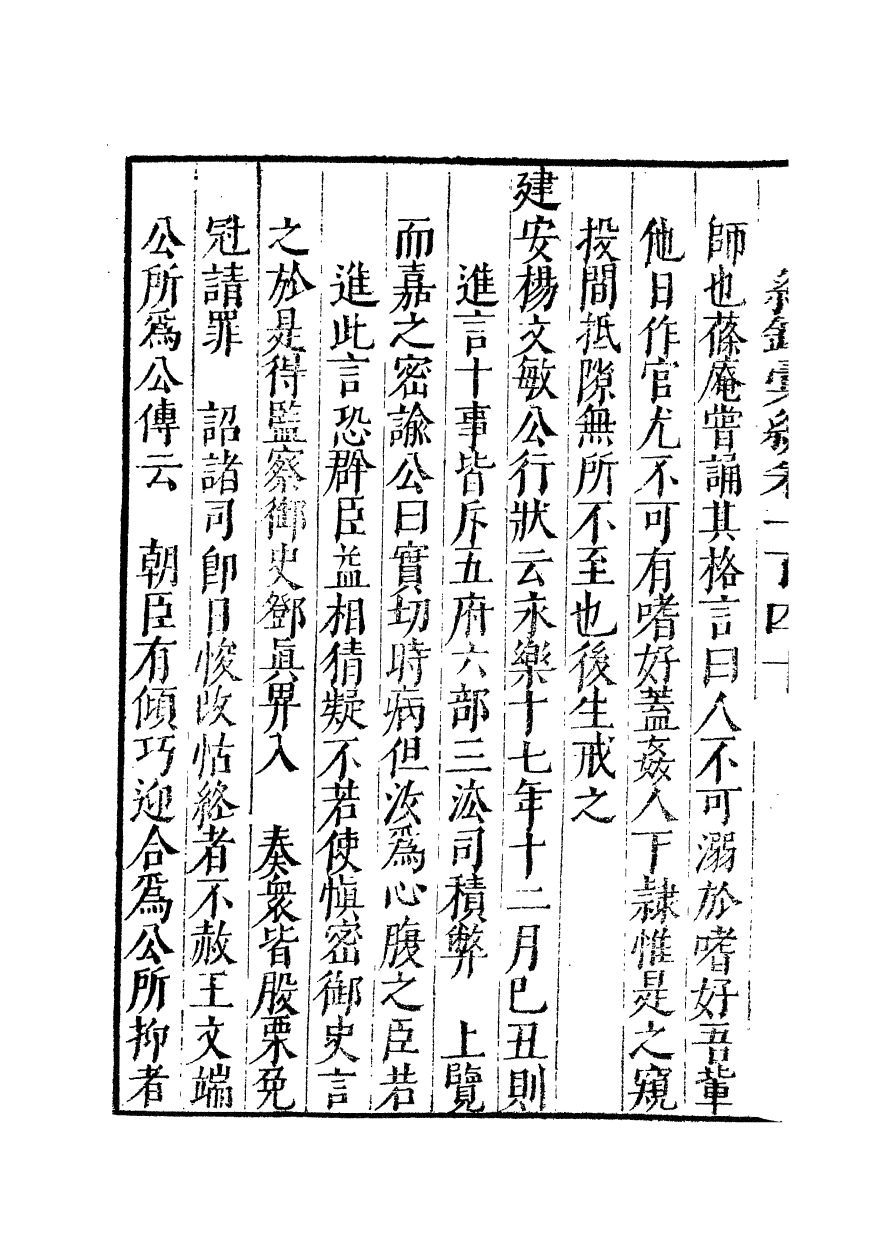 師也蓧庵嘗誦其格言曰人不可溺於嗜好吾輩
他日作官尤不可有嗜好蓋姦人下隷惟是之窺
投間抵隙無所不至也後生戒之
建安楊文敏公行狀云永樂十七年十二月巳丑則
進言十事皆斥五府六部三法司積弊　上覽
而嘉之密諭公曰實切時病但汝爲心腹之臣若
進此言恐群臣益相猜疑不若使愼密御史言
之於是得監察御史鄧眞畀入　奏衆皆股栗免
冠請罪　詔諸司卽日悛改怙終者不赦王文端
公所爲公傳云　朝臣有傾巧迎合爲公所抑者